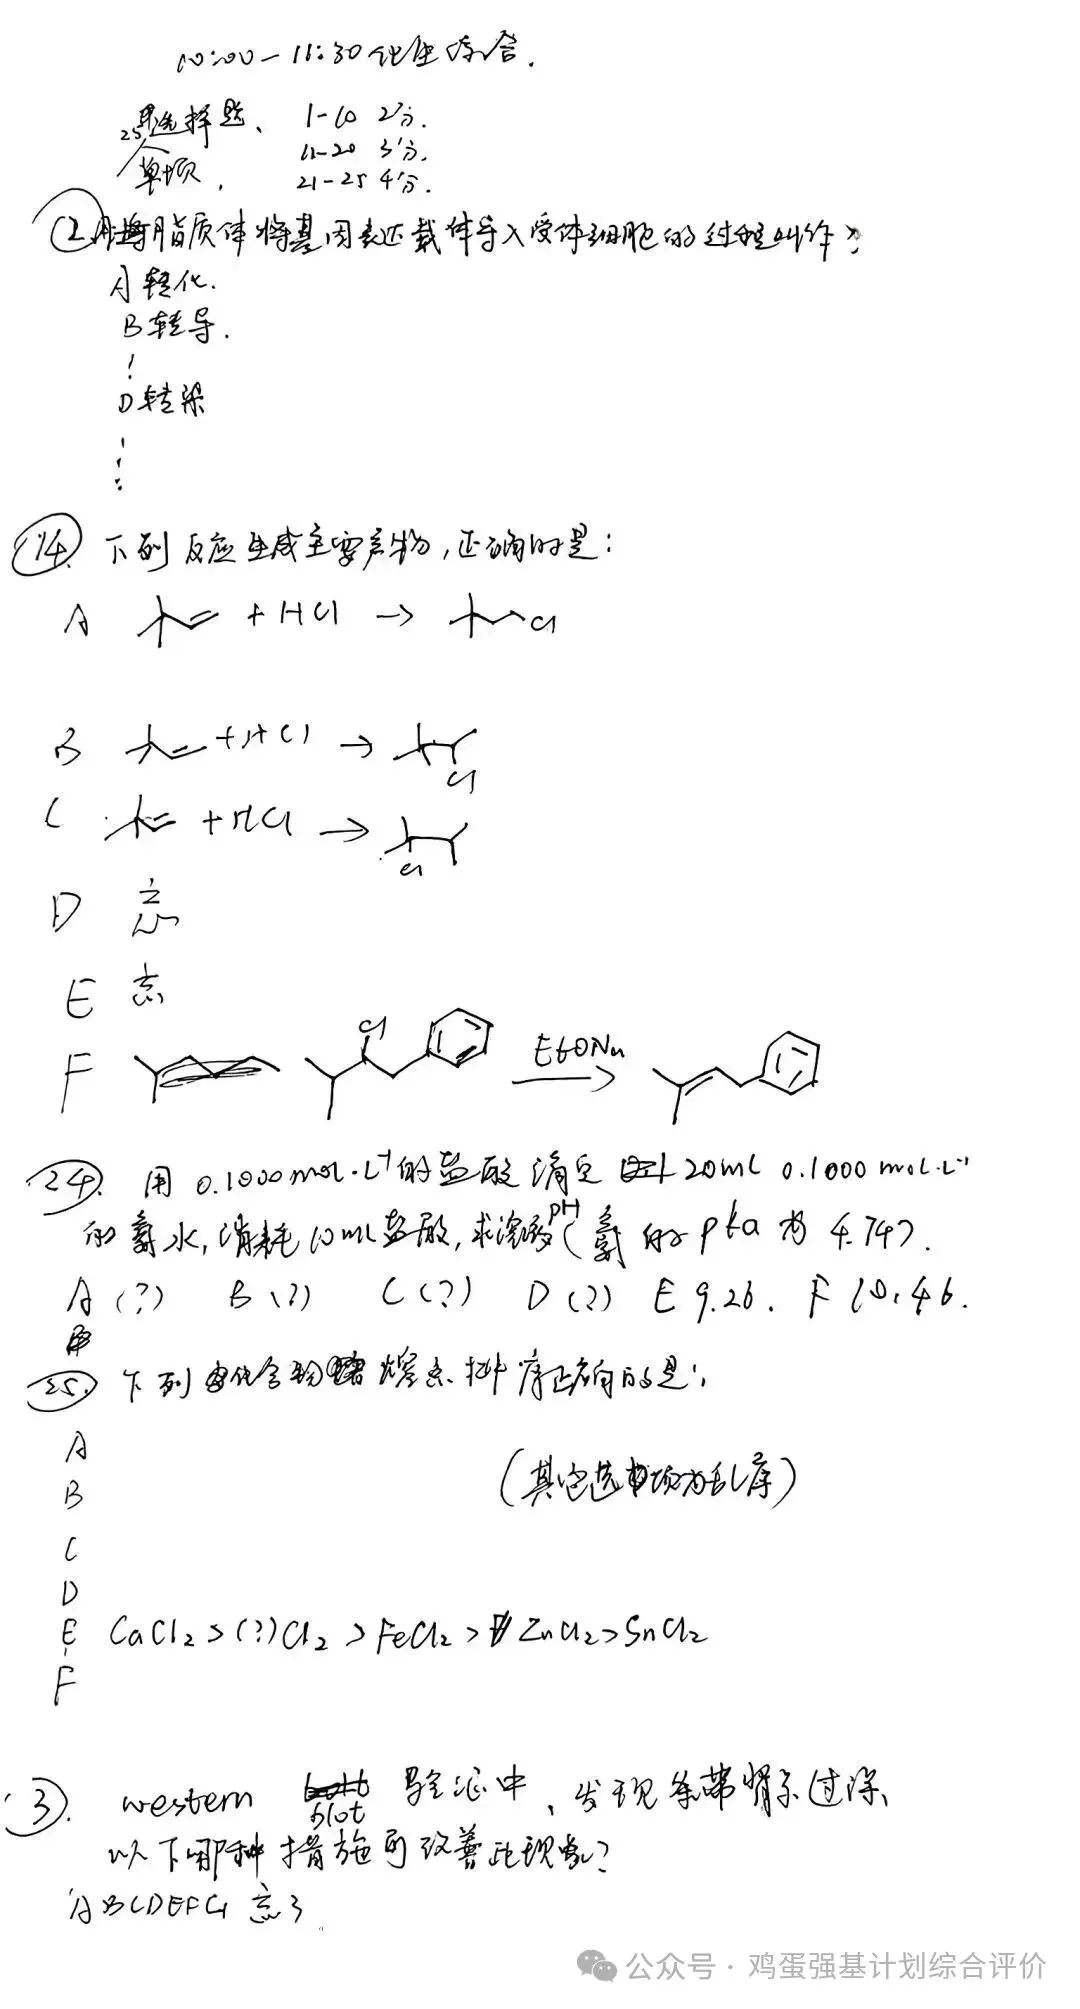 10:00-11:30 化生综合.
25个
选择题、 1-10 2分.
单项, 11-20 3分,
21-25 4分.
② 用脂质体将基因表达载体导入受体细胞的过程叫作?
A 转化.
B 转导.
D 转染
⑭. 下列反应生成主要产物,正确的是:
A + HCl → Cl
B + HCl → Cl
C + HCl → Cl
D 忘
E 忘
F Cl EtONa
㉔. 用 0.1000 mol·L⁻¹的盐酸滴定 20mL 0.1000 mol·L⁻¹
的氨水,消耗10mL盐酸,求溶液pH(氨的pka为4.74).
A (?) B (?) C (?) D (?) E 9.26. F 10.46.
㉕. 下列化合物熔点排序正确的是:
A
(其它选项为乱序)
B
C
D
E CaCl₂ > (?)Cl₂ > FeCl₂ > ZnCl₂ > SnCl₂
F
③. western blot 验证中,发现条带显示过深,
以下哪种措施可改善此现象?
ABCDEFG 忘了
公众号·鸡蛋强基计划综合评价